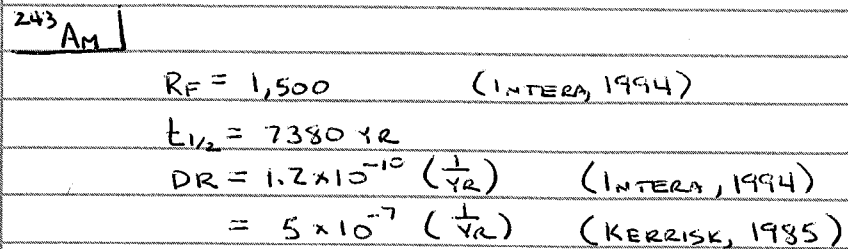 ²⁴³Am
R_F = 1,500 (INTERA, 1994)
t_1/2 = 7380 YR
DR = 1.2×10⁻¹⁰ (1/YR) (INTERA, 1994)
= 5×10⁻⁷ (1/YR) (KERRISK, 1985)